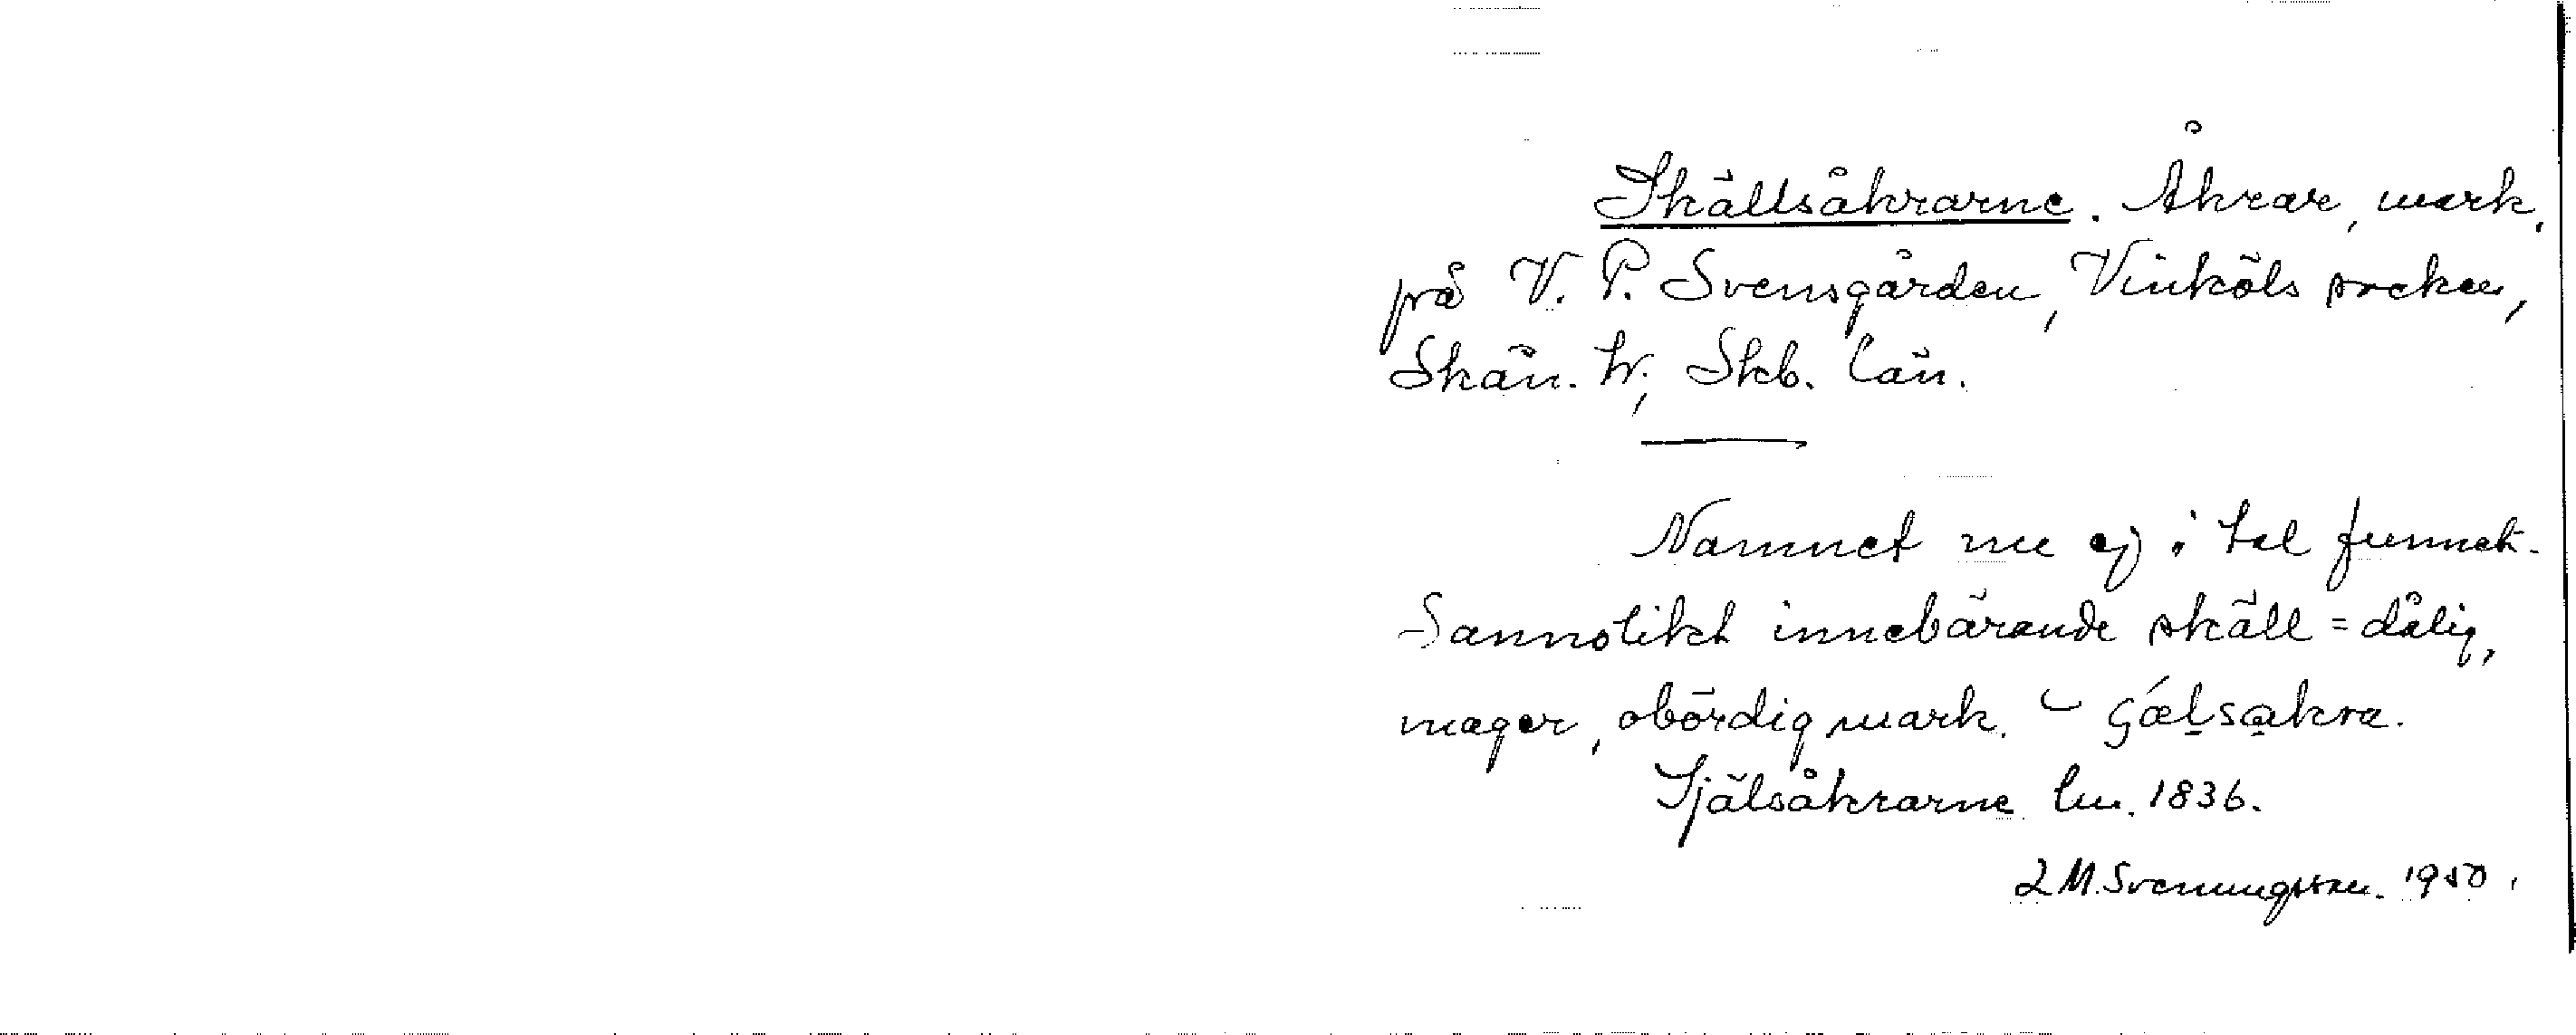 Skällsåkrarne. Åkrar, mark,
på V. P. Svensgården, Vinköls socken,
Skån. hr, Skb. län.
Namnet nu ej i tal funnet.
Sannolikt innebärande skäll = dålig,
mager, obördig mark.
Själsåkrarne lm. 1836.
L M. Svenungsson. 1950.